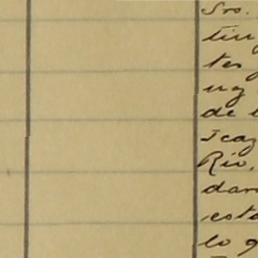 Sro.
tin
tes
ug
de l
Icaz
Rio,
dan
esta
lo q